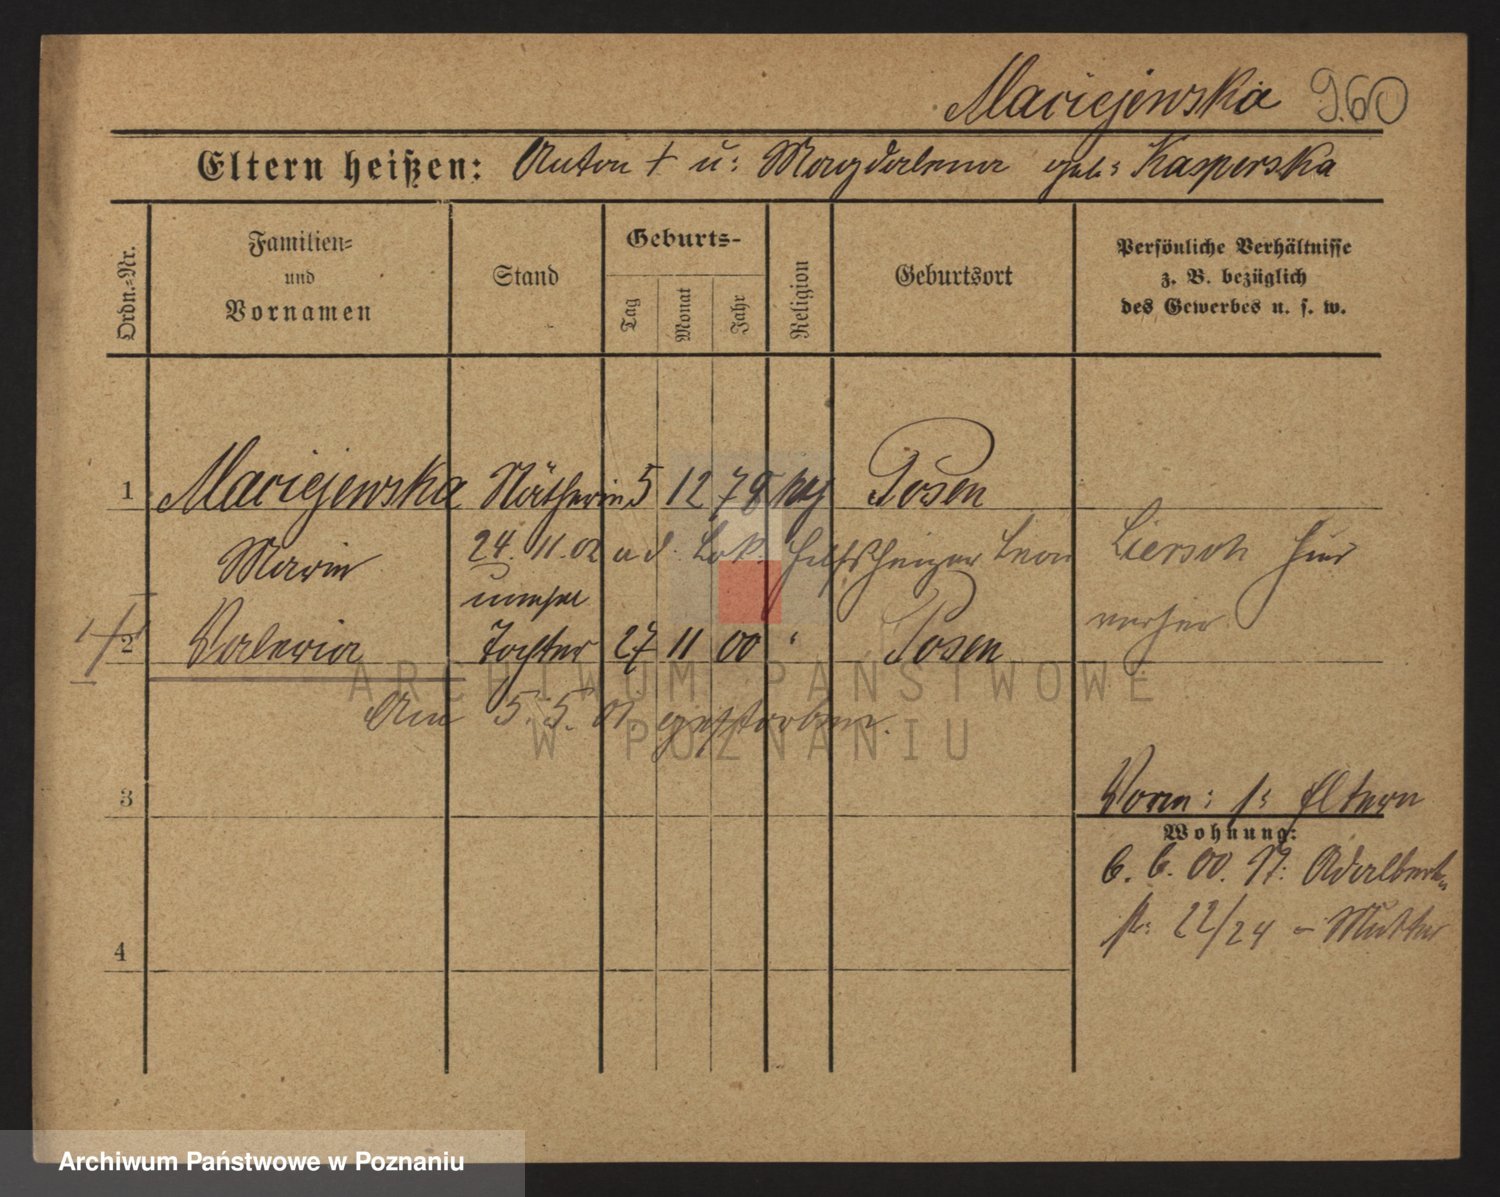 Maciejewska 960
Eltern heißen: Anton † u: Magdalena geb: Kasperska
Ordn.-Nr.
Familien- und Vornamen
Stand
Geburts-
Tag Monat Jahr
Religion
Geburtsort
Persönliche Verhältnisse
z. B. bezüglich
des Gewerbes u. s. w.
1 Maciejewska Nätherin 5 12 78 Posen
Marie 24. 11. 02 a. d. Lok. Hilfsheizer Leon Liersch hier
verh.
unehel.
2 Valeria Tochter 27 11 00 " Posen
Am 5. 5. 01 gestorben.
3
Vorm: s: Eltern
Wohnung:
6. 6. 00. St: Adalbert
str: 22/24 - Mutter
4
ARCHIWUM PAŃSTWOWE
W POZNANIU
Archiwum Państwowe w Poznaniu